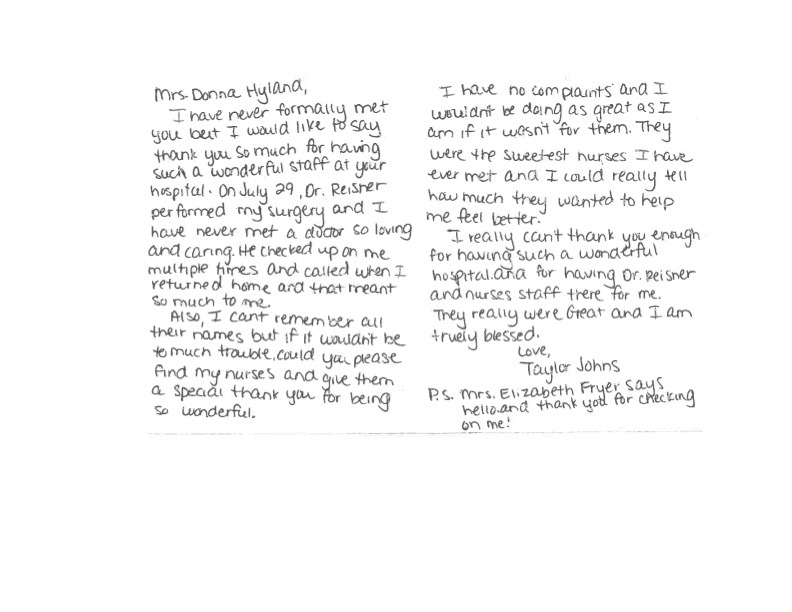 Mrs. Donna Hyland,
I have never formally met
you but I would like to say
thank you so much for having
such a wonderful staff at your
hospital. On July 29, Dr. Reisner
performed my surgery and I
have never met a doctor so loving
and caring. He checked up on me
multiple times and called when I
returned home and that meant
so much to me.
Also, I cant remember all
their names but if it wouldn't be
to much trouble, could you please
find my nurses and give them
a special thank you for being
so wonderful.
I have no complaints and I
wouldn't be doing as great as I
am if it wasn't for them. They
were the sweetest nurses I have
ever met and I could really tell
how much they wanted to help
me feel better.
I really can't thank you enough
for having such a wonderful
hospital.and for having Dr. Reisner
and nurses staff there for me.
They really were Great and I am
truely blessed.
Love,
Taylor Johns
P.S. Mrs. Elizabeth Fryer says
hello.and thank you for checking
on me!